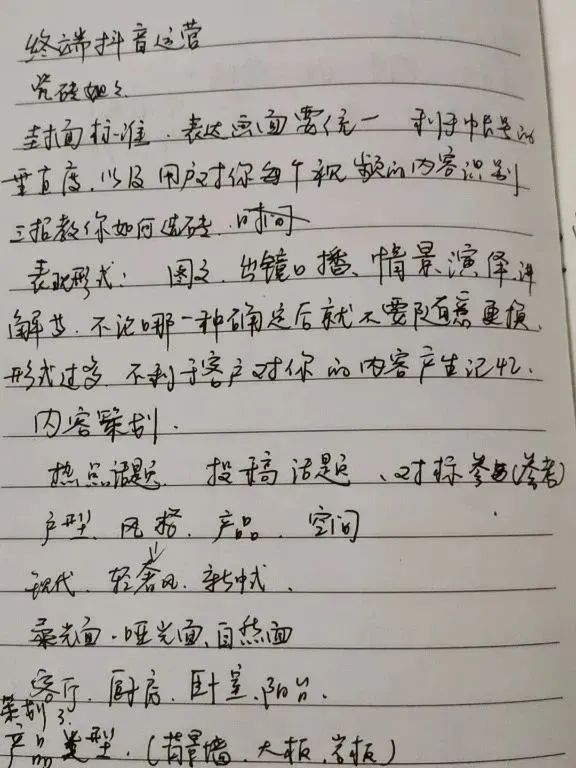 终端抖音运营
瓷砖她々
封面标准、表达画面要统一 利于帐号的
垂直度、以及用户对你每个视频的内容识别
三招教你如何选砖、时间
表现形式: 图文、出镜口播、情景演绎、讲
解等、不论哪一种确定后就不要随意更换、
形式过多、不利于客户对你的内容产生记忆.
内容策划.
热点话题、 投稿话题 、对标参与(参考)
户型、风格、产品、空间
现代、轻奢风、新中式、
柔光面、哑光面、自然面
客厅、厨房、卧室、阳台、
策划
产品类型、(背景墙、大板、岩板)